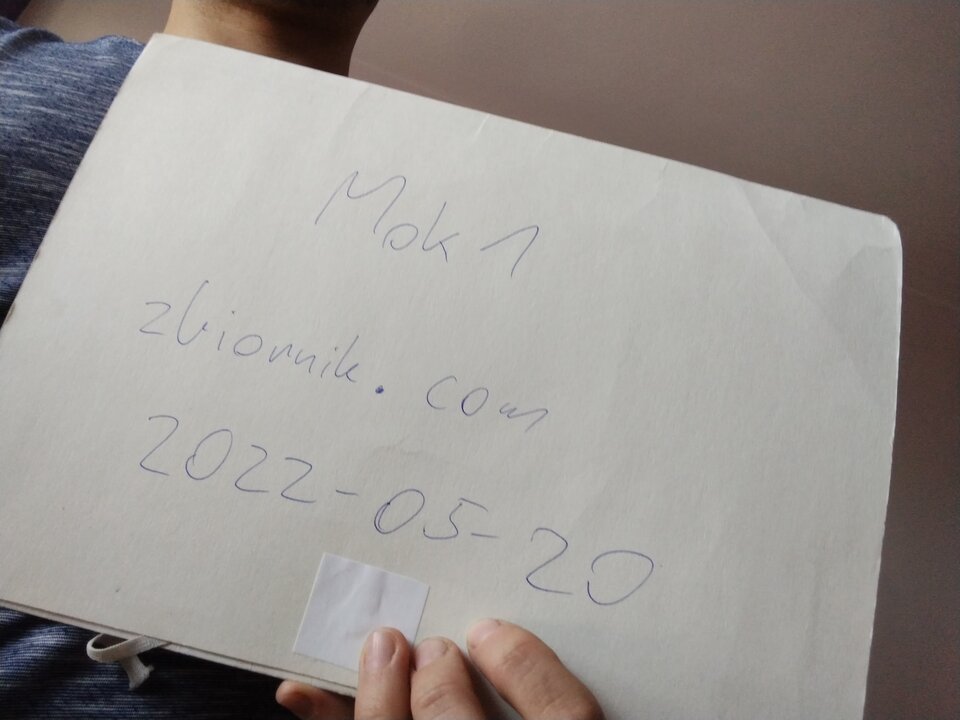 Mok1
zbiornik.com
2022-05-20